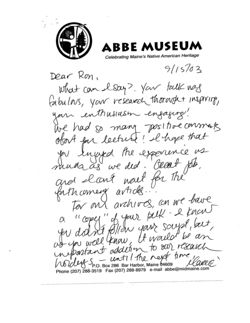 ABBE MUSEUM
Celebrating Maine's Native American Heritage
9/15/03
Dear Ron,
What can I say? Your talk was
fabulous, your research thought inspiring,
your enthusiasm engaging!
We had so many positive comments
about your lecture! I hope that
you enjoyed the experience as
much as we did. Great job,
and I can't wait for the
forthcoming article.
For our archives, can we have
a "copy" of your talk. I know
you did not follow your script, but,
as you well know, it would be an
important addition to our research
holdings — until the next time,
P.O. Box 286 Bar Harbor, Maine 04609
Phone (207) 288-3519 Fax (207) 288-8979 e-mail abbe@midmaine.com